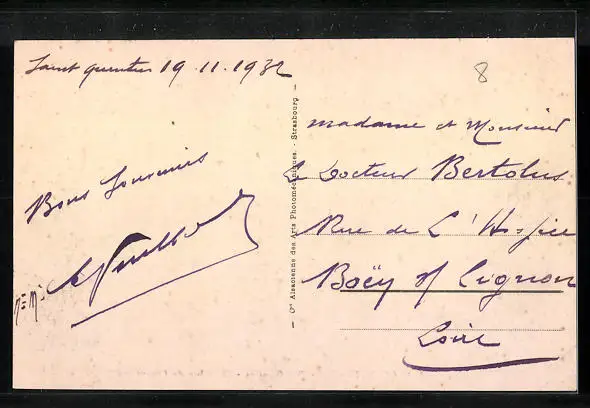 Saint Quentin 19.11.1932
8
Bons Souvenirs
— Cie Alsacienne des Arts Photomécaniques. - Strasbourg —
madame et Monsieur
Le Docteur Bertolus
Rue de L'Hospice
Boën s/ Lignon
Loire